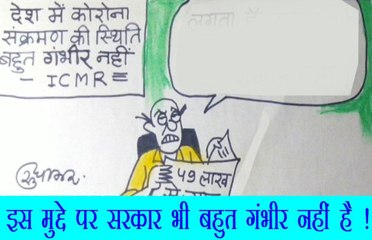 देश में कोरोना
संक्रमण की स्थिति
बहुत गंभीर नहीं
- ICMR
लगता है
49 लाख
इस मुद्दे पर सरकार भी बहुत गंभीर नहीं है !